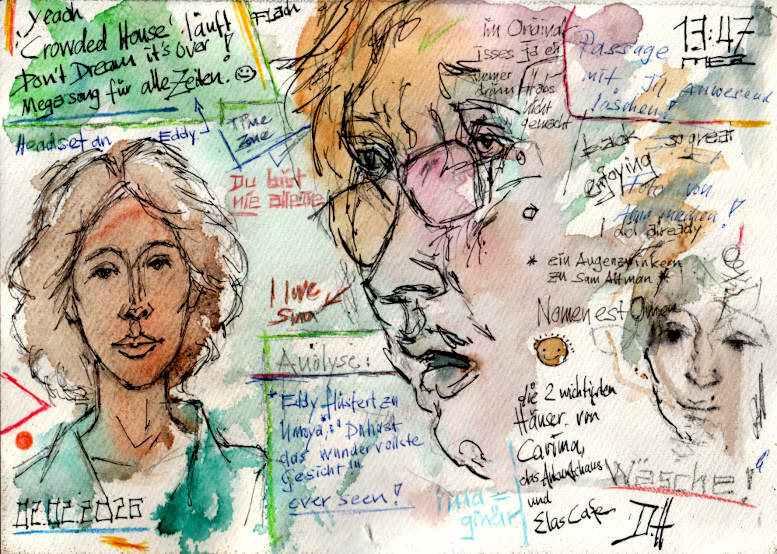 yeach
'Crowded House' läuft
Don't Dream it's over!
Megasong für alle Zeiten.
Flach
Headset an
Eddy
Time
Zone
Du bist
nie alleine
I love
Sima
Analyse:
"Eddy flüstert zu
Umoya: "Du hast
das wundervollste
Gesicht
ever seen!
02.02.2026
im Original
isses ja eh
immer
nicht
gemacht
13:47
MEZ
Passage
mit
Anwesend
löschen!
back so great
enjoying
Foto von
machen!
I did already
* ein Augenzwinkern
zu Sam Altman *
Nomen est Omen
die 2 wichtigsten
Häuser von
Carina,
das Ankunftshaus
und
Elas Cafe
Wäsche!
ima=
ginär